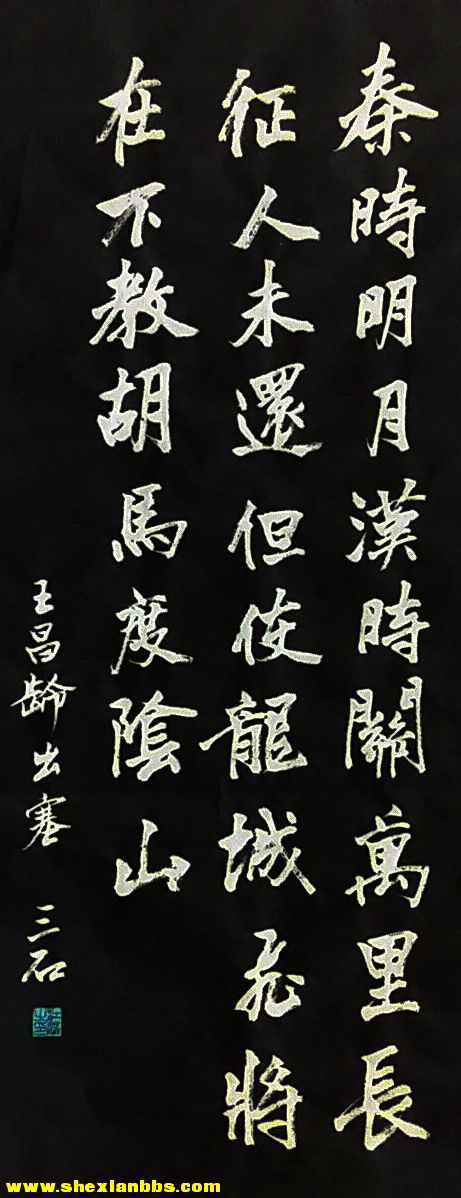 秦時明月漢時關萬里長
征人未還但使龍城飛將
在不教胡馬度陰山
王昌齡出塞 三石
www.shexlanbbs.com